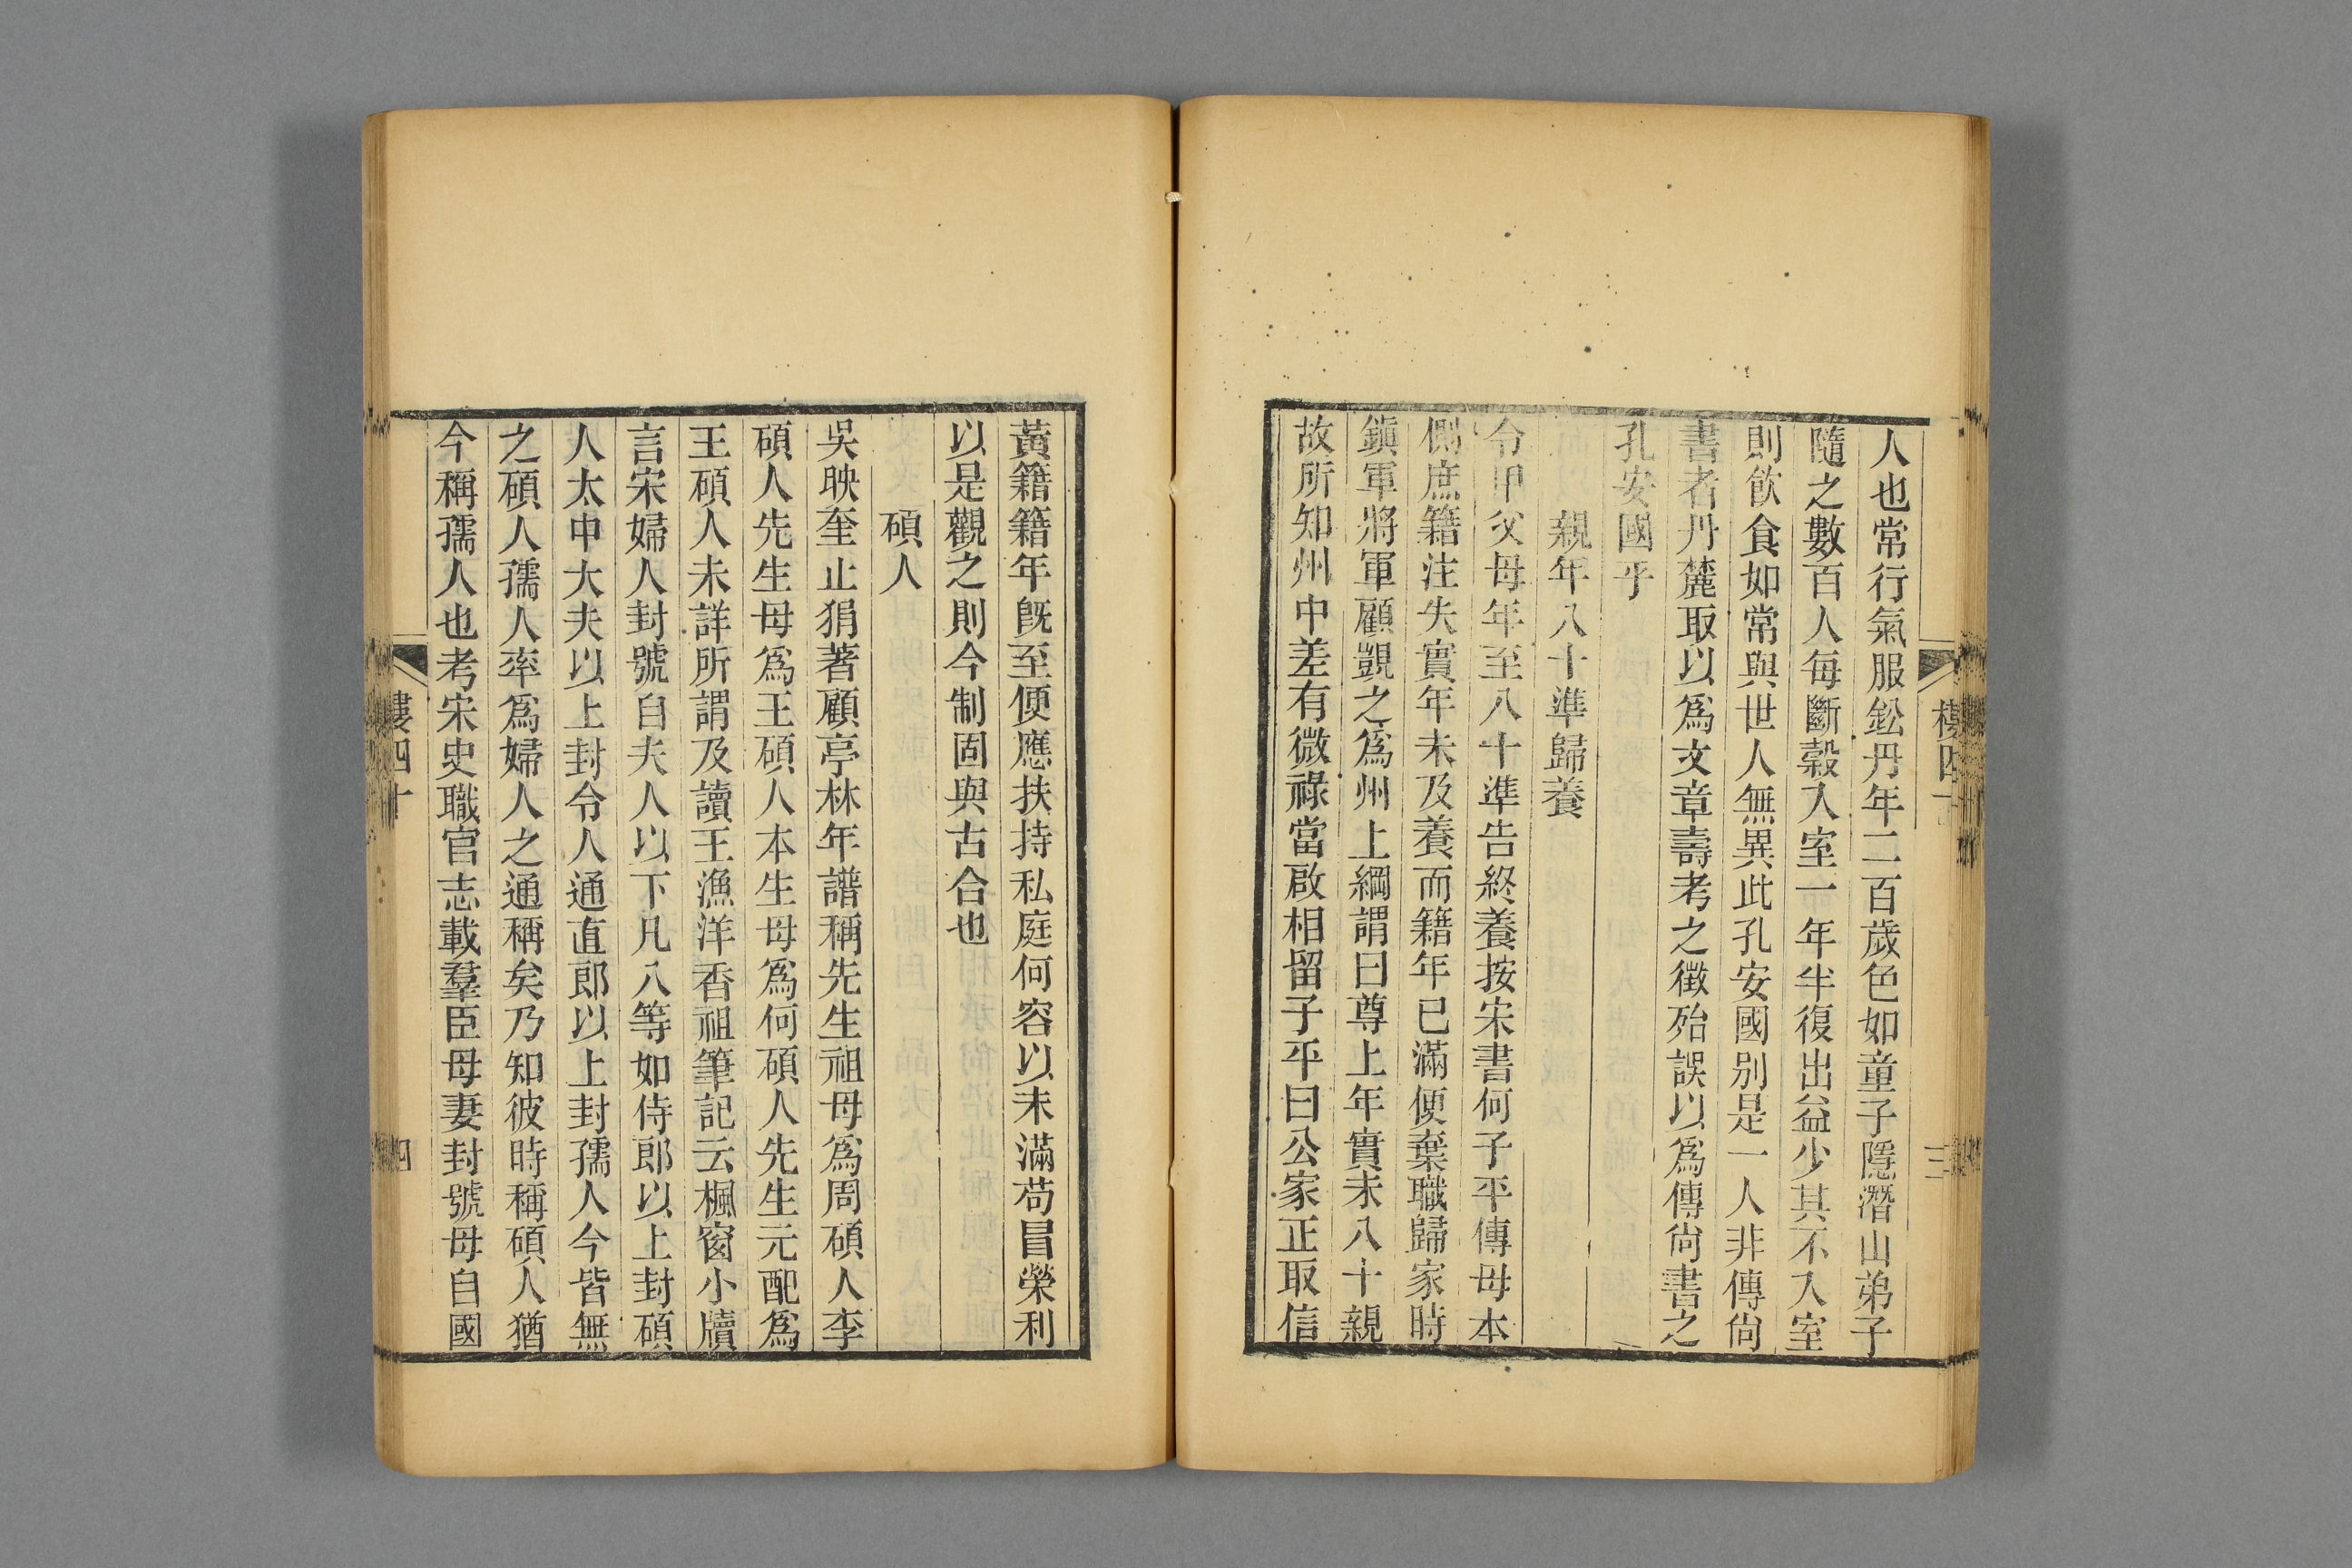 人也常行氣服鈆丹年二百歲色如童子隱潛山弟子
隨之數百人每斷穀入室一年半復出益少其不入室
則飲食如常與世人無異此孔安國别是一人非傳尙
書者丹麓取以爲文章壽考之徵殆誤以爲傳尙書之
孔安國乎
親年八十準歸養
令甲父母年至八十準告終養按宋書何子平傳母本
側庶籍注失實年未及養而籍年已滿便棄職歸家時
鎭軍將軍顧覬之爲州上綱謂曰尊上年實未八十親
故所知州中差有微祿當啟相留子平曰公家正取信
黃籍籍年旣至便應扶持私庭何容以未滿苟冒榮利
以是觀之則今制固與古合也
碩人
吳映奎止狷著顧亭林年譜稱先生祖母爲周碩人李
碩人先生母爲王碩人本生母爲何碩人先生元配爲
王碩人未詳所謂及讀王漁洋香祖筆記云楓窗小牘
言宋婦人封號自夫人以下凡八等如侍郎以上封碩
人太中大夫以上封令人通直郎以上封孺人今皆無
之碩人孺人率爲婦人之通稱矣乃知彼時稱碩人猶
今稱孺人也考宋史職官志載羣臣母妻封號母自國
樓四十
四
三